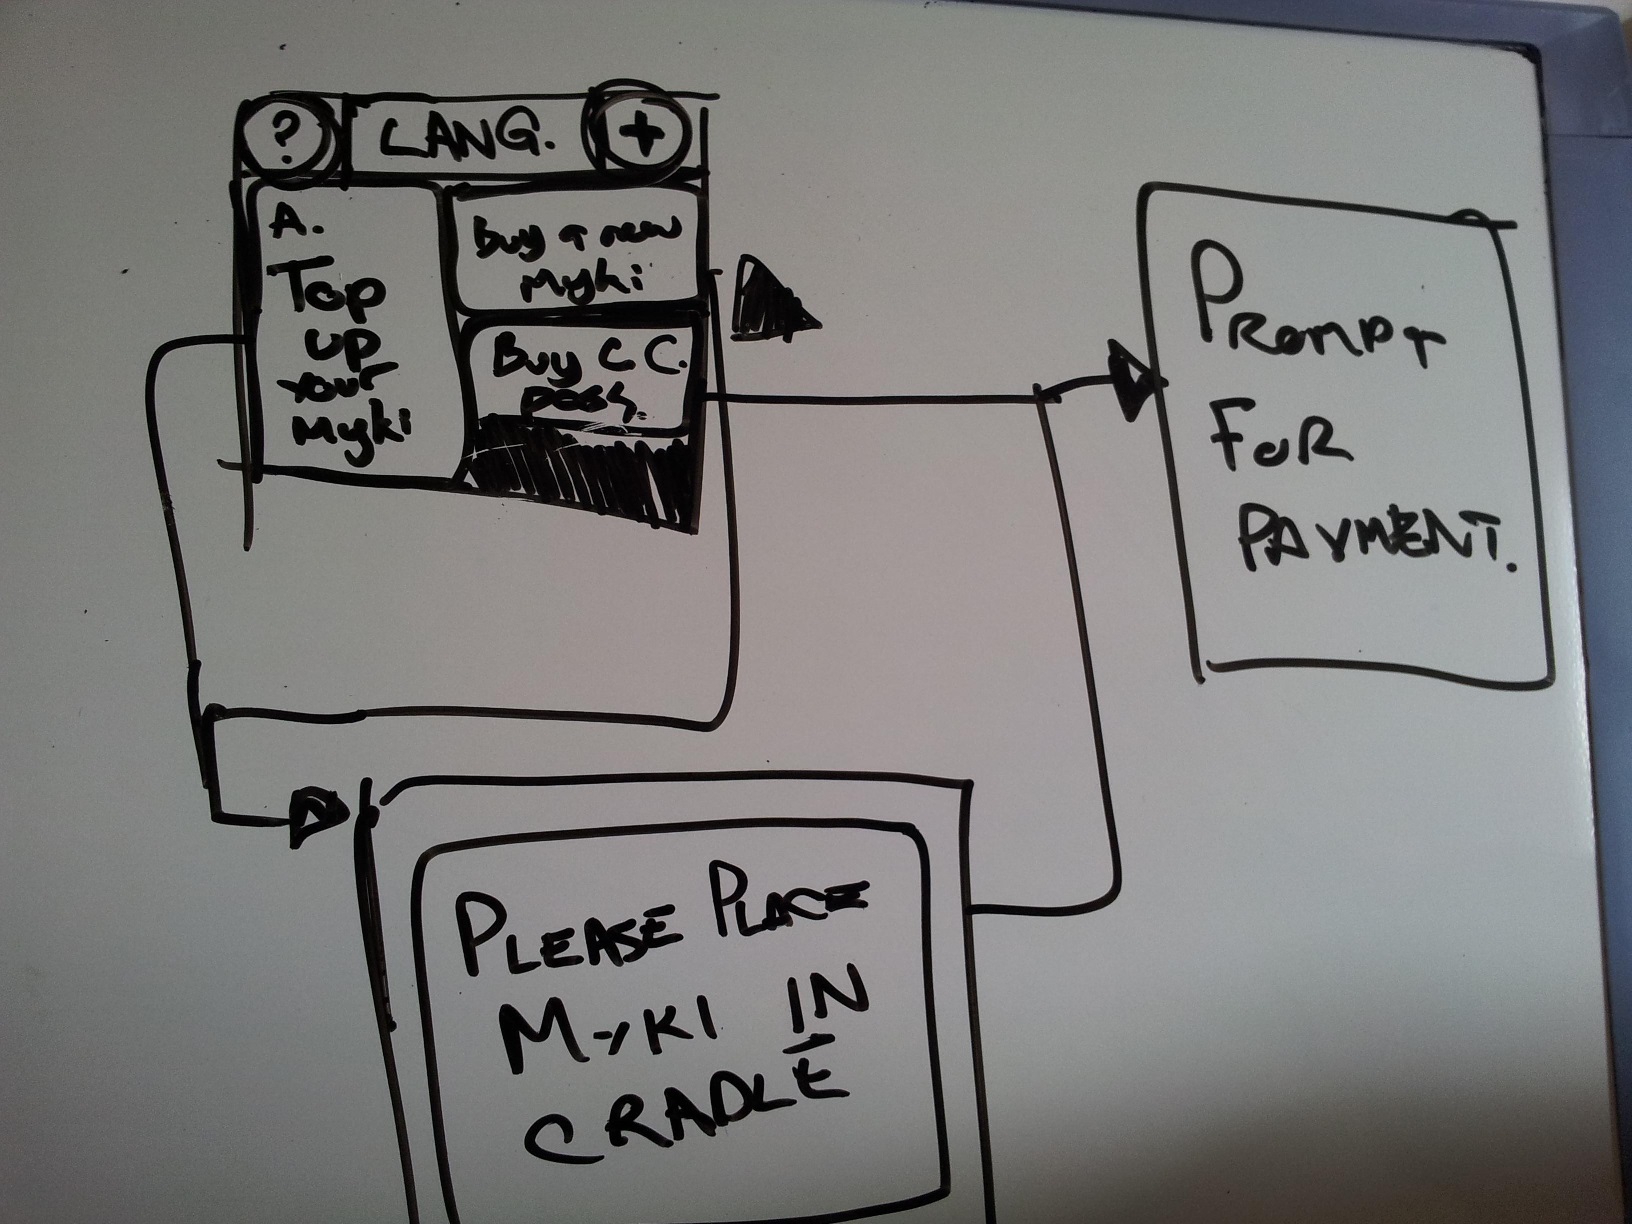 ? LANG. +
A.
Top
up
your
Myki
Buy a new
Myki
Buy C C.
pass.
PROMPT
FOR
PAYMENT.
PLEASE PLACE
MYKI IN
CRADLE